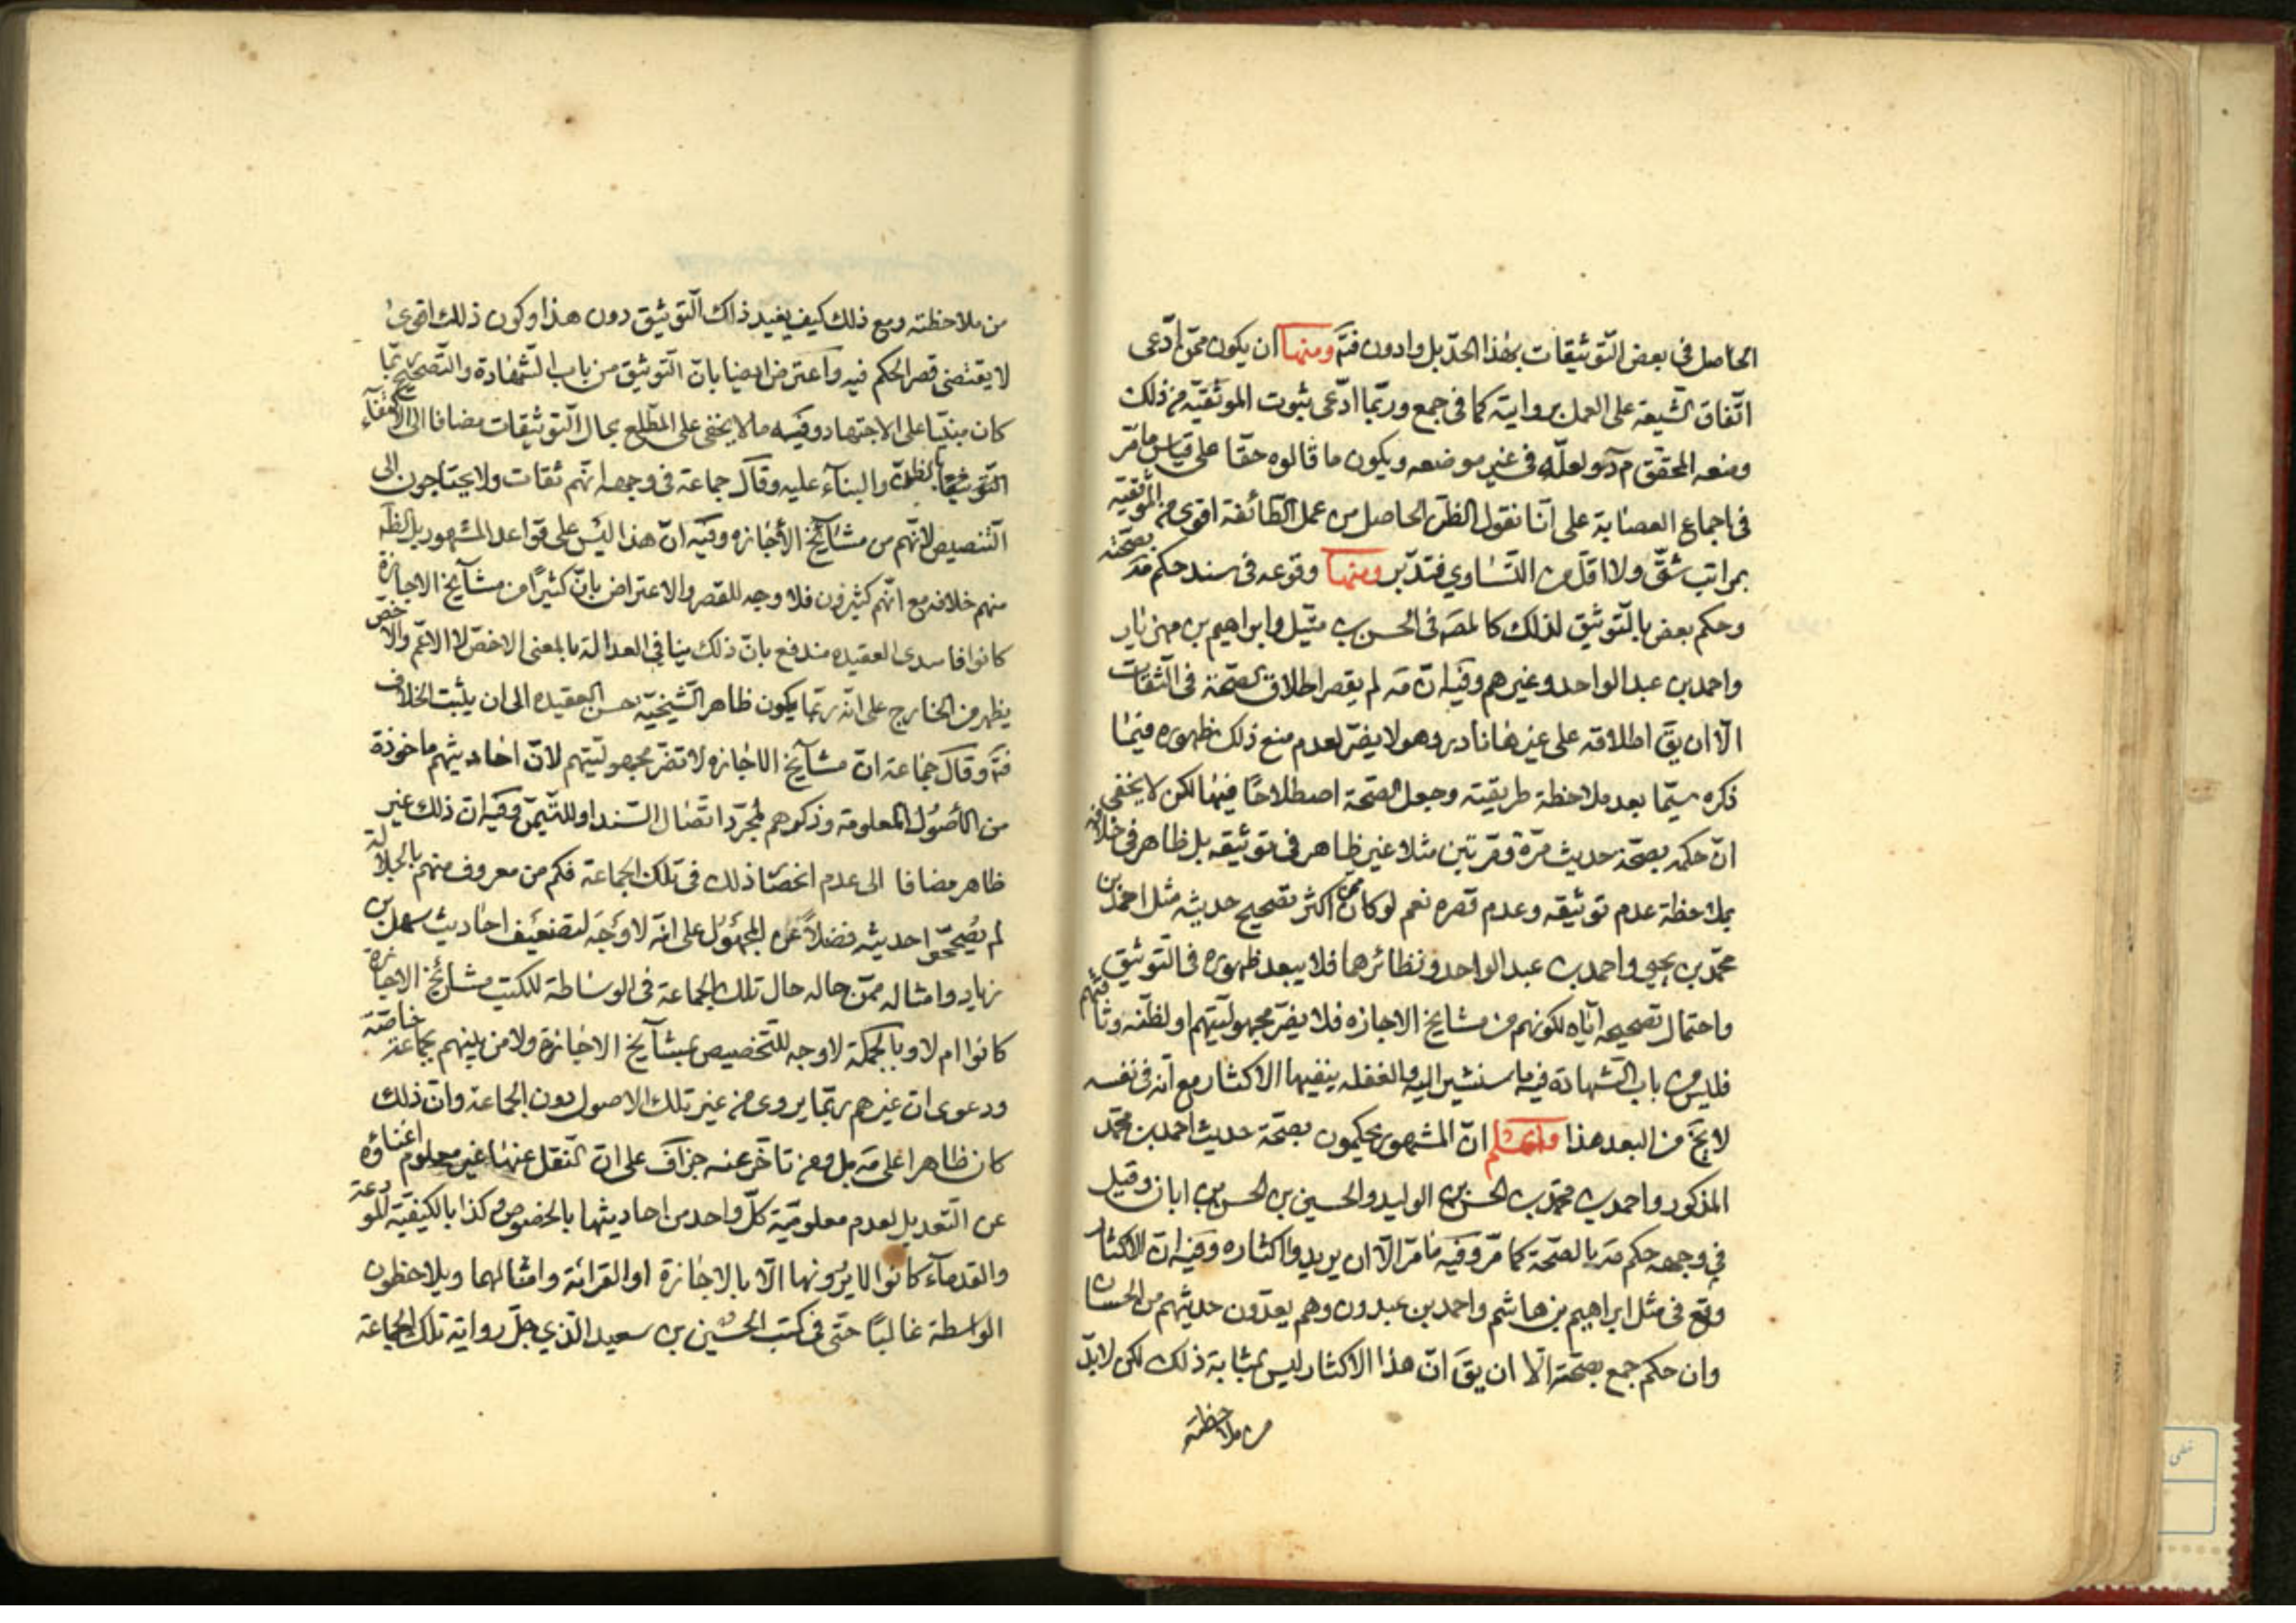 الحاصل فى بعض التوثيقات بهذا الحدّ بل وادون فتمّ ومنها ان يكون ممّن ادّعى
اتّفاق الشيعة على العمل بروايته كما فى جمع وربّما ادّعى ثبوت الموثقيّة من ذلك
ومنعه المحقق م د ولعلّه فى غير موضعه ويكون ما قالوه حقّا على قياس ما مرّ
فى اجماع العصابة على انّا نقول الظنّ الحاصل من عمل الطّائفة اقوى من الموثقية
بمراتب شتّى ولا اقلّ من التّساوي فتدبّر ومنها وقوعه فى سند حكم مَه بصحّته
وحكم بعض بالتّوثيق لذلك كالمصَه فى الحسن بن متّيل وابراهيم بن مهزيار
واحمد بن عبد الواحد وغيرهم وفيه انّ مَه لم يقصر اطلاق الصحّة فى الثّقات
الّا ان يقَ اطلاقه على غيرها نادر وهو لا يضرّ لعدم منع ذلك ظهوره فيما
ذكره سيّما بعد ملاحظة طريقته وجعل الصحّة اصطلاحًا فيها لكن لا يخفى
انّ حكمه بصحّة حديث مرّة ومرّتين مثلا غير ظاهر فى توثيقه بل ظاهر فى خلافه
بملاحظة عدم توثيقه وعدم قصره نعم لو كان ممن اكثر تصحيح حديثه مثل احمد بن
محمّد بن يحيى واحمد بن عبد الواحد ونظائرهما فلا يبعد ظهوره فى التّوثيق
واحتمال تصحيحه ايّاه لكونهم من مشايخ الاجازه فلا يضرّ مجهوليّتهم او لظنّه وثاقتهم
فليس من باب الشهادة فيه ما سنشير اليه والغفله ينفيها الاكثار مع انّه فى نفسه
لا يخَ من البعد هذا واعلم انّ المشهور يحكمون بصحّة حديث احمد بن محمّد
المذكور واحمد بن محمّد بن الحسن بن الوليد والحسين بن الحسن بن ابان وقيل
في وجهه حكم مَه بالصحّة كما مرّ وفيه ما مرّ الّا ان يريدوا اكثاره وفيه انّ الاكثار
وقع فى مثل ابراهيم بن هاشم واحمد بن عبدون وهم يعدّون حديثهم من الحسان
وان حكم جمع بصحّته الّا ان يقَ انّ هذا الاكثار ليس بمثابة ذلك لكن لا بدّ
من ملاحظته
من ملاحظته ومع ذلك كيف يفيد ذاك التّوثيق دون هذا وكون ذلك اقوى
لا يقتضى قصر الحكم فيه واعترض ايضا بانّ التّوثيق من باب الشّهادة والتّصحيح ربّما
كان مبنيّا على الاجتهاد وفيه ما لا يخفى على المطّلع بحال التّوثيقات مضافا الى الاكتفاء
بالظن والبناء عليه وقال جماعة فى وجهه انّهم ثقات ولا يحتاجون الى
التّنصيص لانّهم من مشائخ الأجازه وفيه انّ هذا ليس على قواعد المشهور بل الظَه
منهم خلافه مع انّهم كثيرون فلا وجه للقصر والاعتراض بانّ كثيرًا من مشايخ الاجازة
كانوا فاسدى العقيده مندفع بانّ ذلك ينافى العدالة بالمعنى الاخصّ لا الاعمّ والاخص
يظهر من الخارج على انّه ربّما يكون ظاهر الشّيخيّة حسن العقيده الى ان يثبت الخلاف
فتمَ وقال جماعة انّ مشايخ الاجازه لا تضرّ مجهوليّتهم لانّ احاديثهم ماخوذة
من الأصول المعلومة وذكرهم لمجرّد اتّصال السّند او للتّيمّن وفيه انّ ذلك غير
ظاهر مضافا الى عدم انحصار ذلك فى تلك الجماعة فكم من معروف منهم بالجلالة
لم يُصحّحوا حديثه فضلاً عن المجهول على انّه لا وَجه لتضعيف احاديث سهل بن
زياد وامثاله ممّن حاله حال تلك الجماعة فى الوساطة للكتب مشايخ الاجازة
كانوا ام لا وبالجملة لا وجه للتّخصيص بمشايخ الاجازة ولا من بينهم بجماعة خاصّة
ودعوى انّ غيرهم ربّما يروى من غير تلك الاصول دون الجماعة وانّ ذلك
كان ظاهرا على مَه بل ومن تاخّر عنه جزاف على انّ النّقل عنها غير معلوم اغناؤه
عن التّعديل لعدم معلوميّة كلّ واحد من احاديثها بالخصوص وكذا بالكيفيّة المودعة
والقدماء كانوا لا يروُونها الّا بالاجازة او القرائة وامثالهما ويلاحظون
الواسطة غالبًا حتّى فى كتب الحسين بن سعيد الّذي جلّ رواية تلك الجماعة